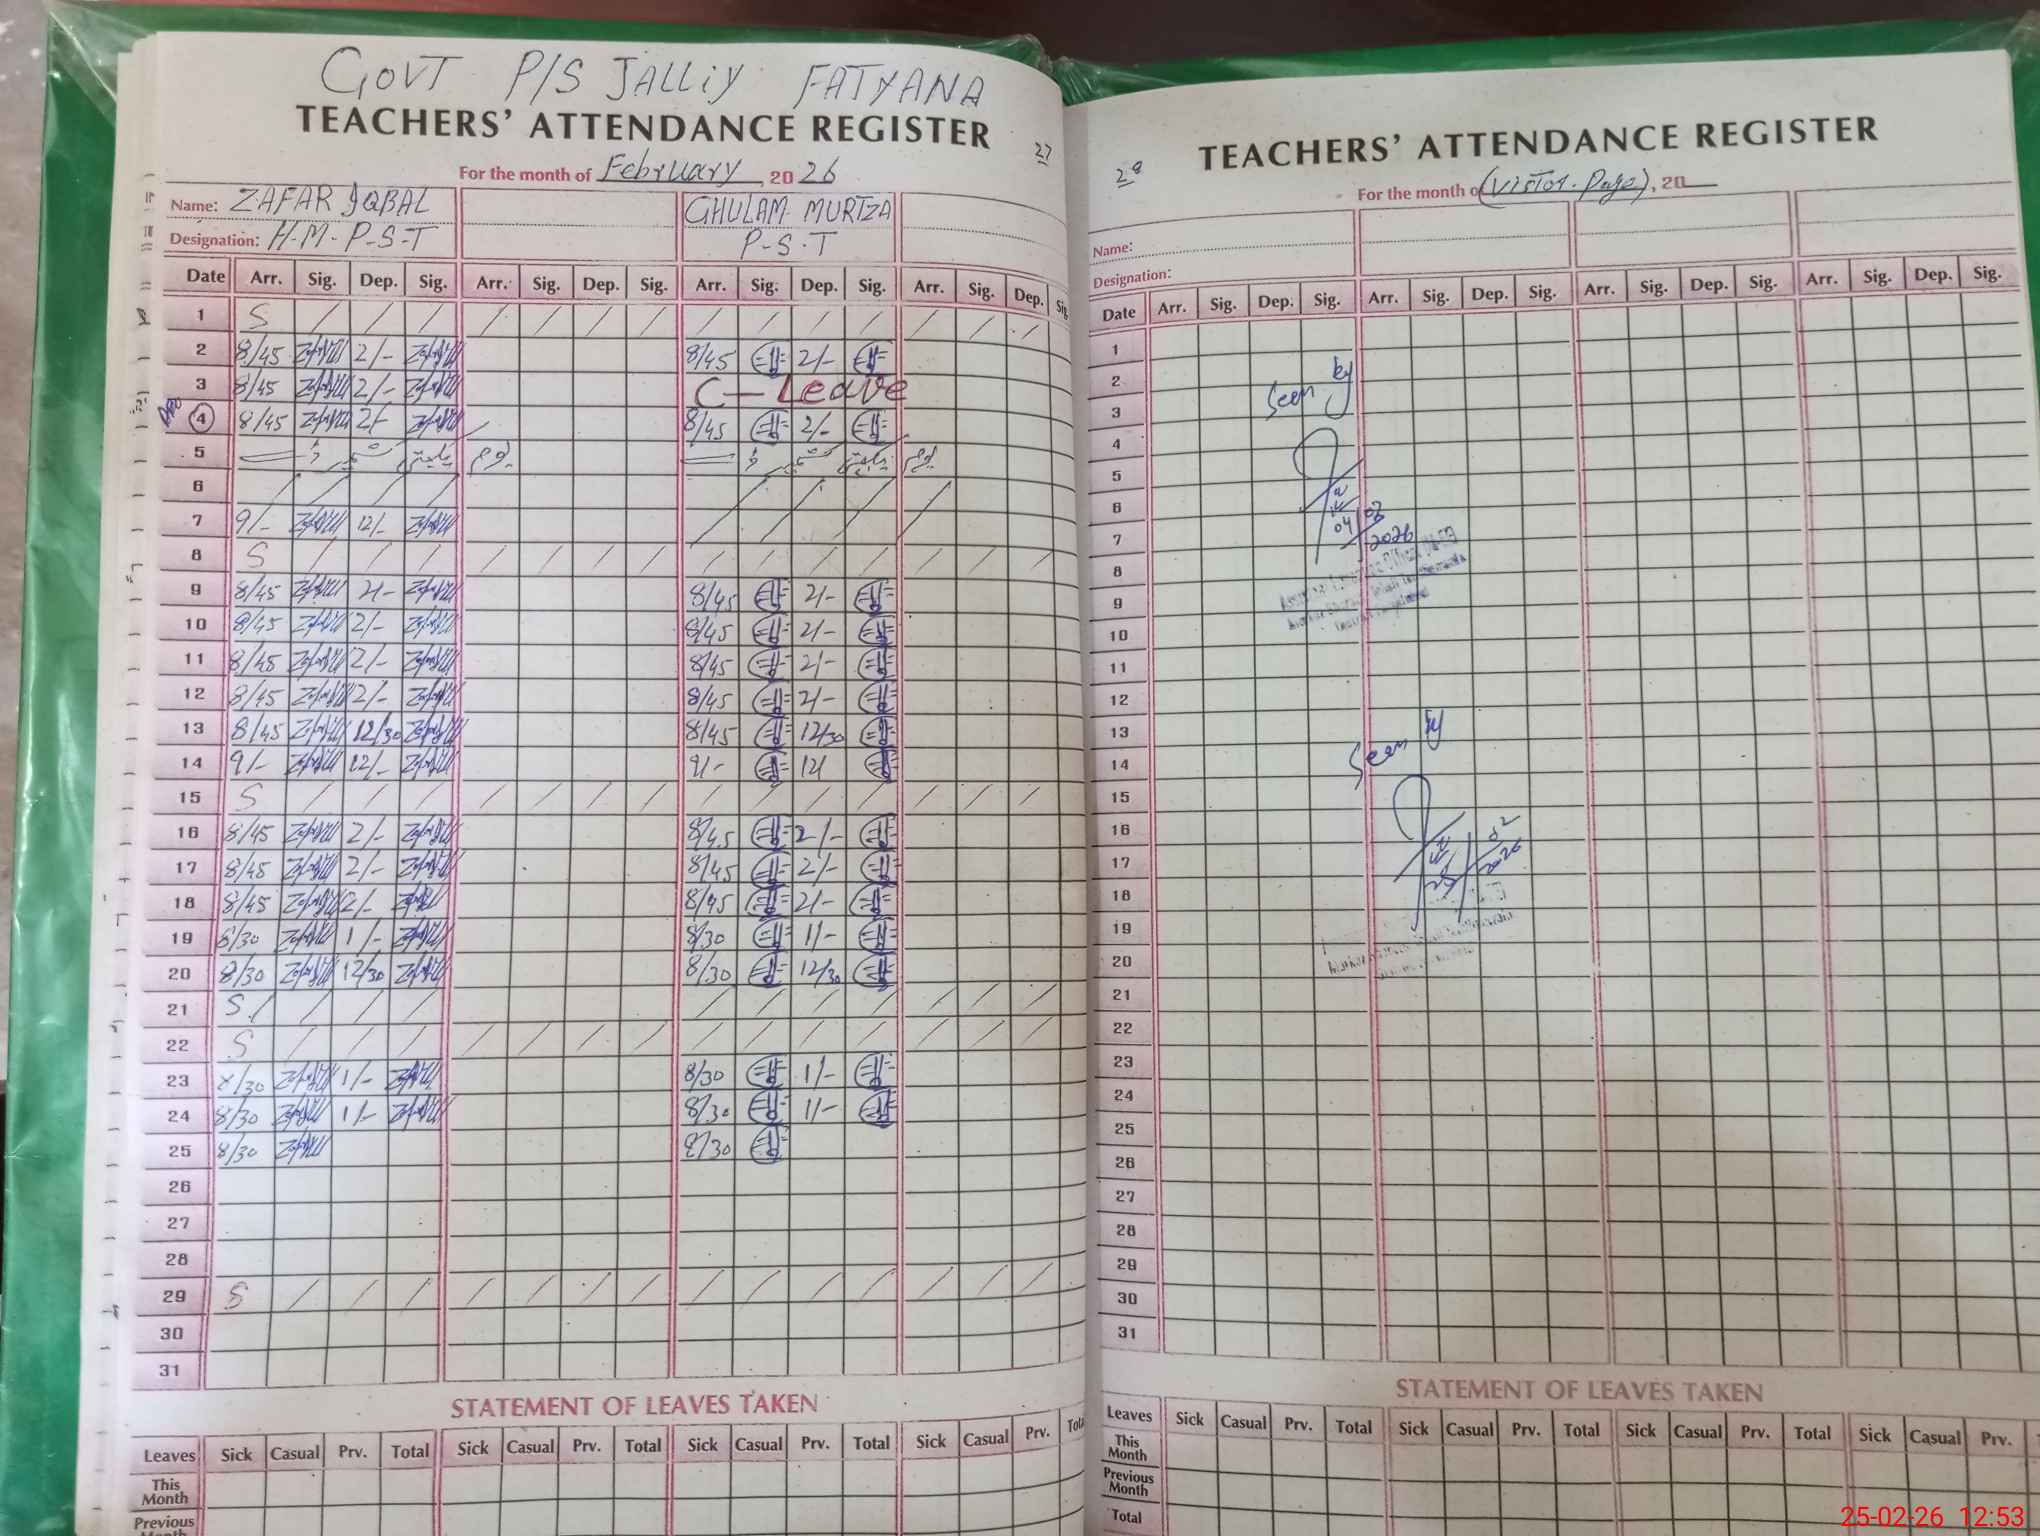 GOVT P/S JALLIY FATYANA
TEACHERS' ATTENDANCE REGISTER
27
For the month of February, 2026
Name: ZAFAR IQBAL GHULAM MURTZA
Designation: H.M.P-S-T P-S-T
Date Arr. Sig. Dep. Sig. Arr. Sig. Dep. Sig. Arr. Sig. Dep. Sig. Arr. Sig. Dep. Sig.
1 S / / / / / / / / / / / / / /
2 8/45 2/- 8/45 2/-
3 8/45 2/- C-Leave
4 8/45 2/- 8/45 2/-
5
6
7 9/- 12/-
8 S / / / / / / / / / / / / / /
9 8/45 2/- 8/45 2/-
10 8/45 2/- 8/45 2/-
11 8/45 2/- 8/45 2/-
12 8/45 2/- 8/45 2/-
13 8/45 12/30 8/45 12/30
14 9/- 12/- 9/- 12/
15 S / / / / / / / / / / / / / /
16 8/45 2/- 8/45 2/-
17 8/45 2/- 8/45 2/-
18 8/45 2/- 8/45 2/-
19 8/30 1/- 8/30 1/-
20 8/30 12/30 8/30 12/30
21 S / / / / / / / / / /
22 S / / / / / / / / / / / / / /
23 8/30 1/- 8/30 1/-
24 8/30 1/- 8/30 1/-
25 8/30 8/30
26
27
28
29 S / / / / / / / / / / / / / /
30
31
STATEMENT OF LEAVES TAKEN
Leaves Sick Casual Prv. Total Sick Casual Prv. Total Sick Casual Prv. Total Sick Casual Prv. Total
This Month
Previous Month
28
TEACHERS' ATTENDANCE REGISTER
For the month of (Vistor. Page), 20
Name:
Designation:
Date Arr. Sig. Dep. Sig. Arr. Sig. Dep. Sig. Arr. Sig. Dep. Sig. Arr. Sig. Dep. Sig.
1
2
3 Seen by
4
5
6
7 2026
8
9
10
11
12
13
14 Seen by
15
16 02
17 2026
18
19
20
21
22
23
24
25
26
27
28
29
30
31
STATEMENT OF LEAVES TAKEN
Leaves Sick Casual Prv. Total Sick Casual Prv. Total Sick Casual Prv. Total Sick Casual Prv.
This Month
Previous Month
Total
25-02-26 12:53